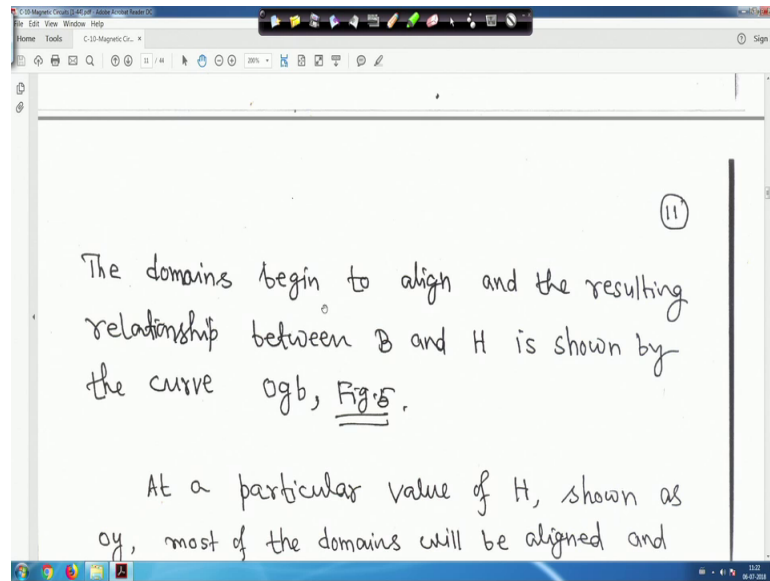 C-10-Magnetic Circuits [1-44].pdf - Adobe Acrobat Reader DC
File Edit View Window Help
Home Tools C-10-Magnetic Cir... × Sign
11 / 44 200%
11
The domains begin to align and the resulting
relationship between B and H is shown by
the curve ogb, Fig.5.
At a particular value of H, shown as
oy, most of the domains will be aligned and
11:22
06-07-2018